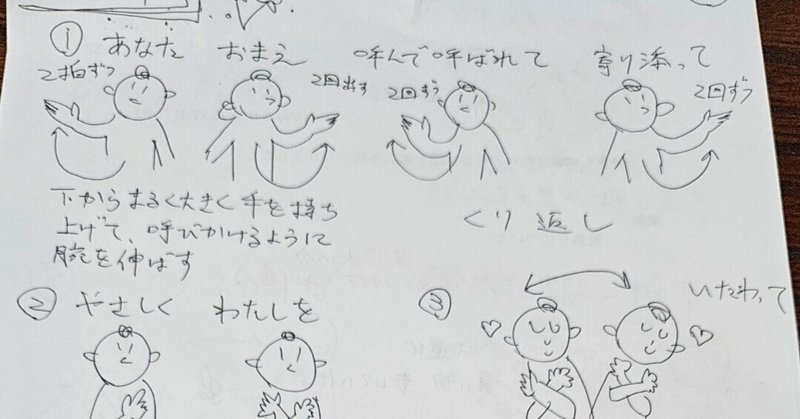 ① あなた おまえ 呼んで呼ばれて 寄り添って
2拍ずつ 2回出す 2回ずつ 2回ずつ
下からまるく大きく手を持ち
上げて、呼びかけるように
腕を伸ばす
くり返し
② やさしく わたしを ③ いたわって